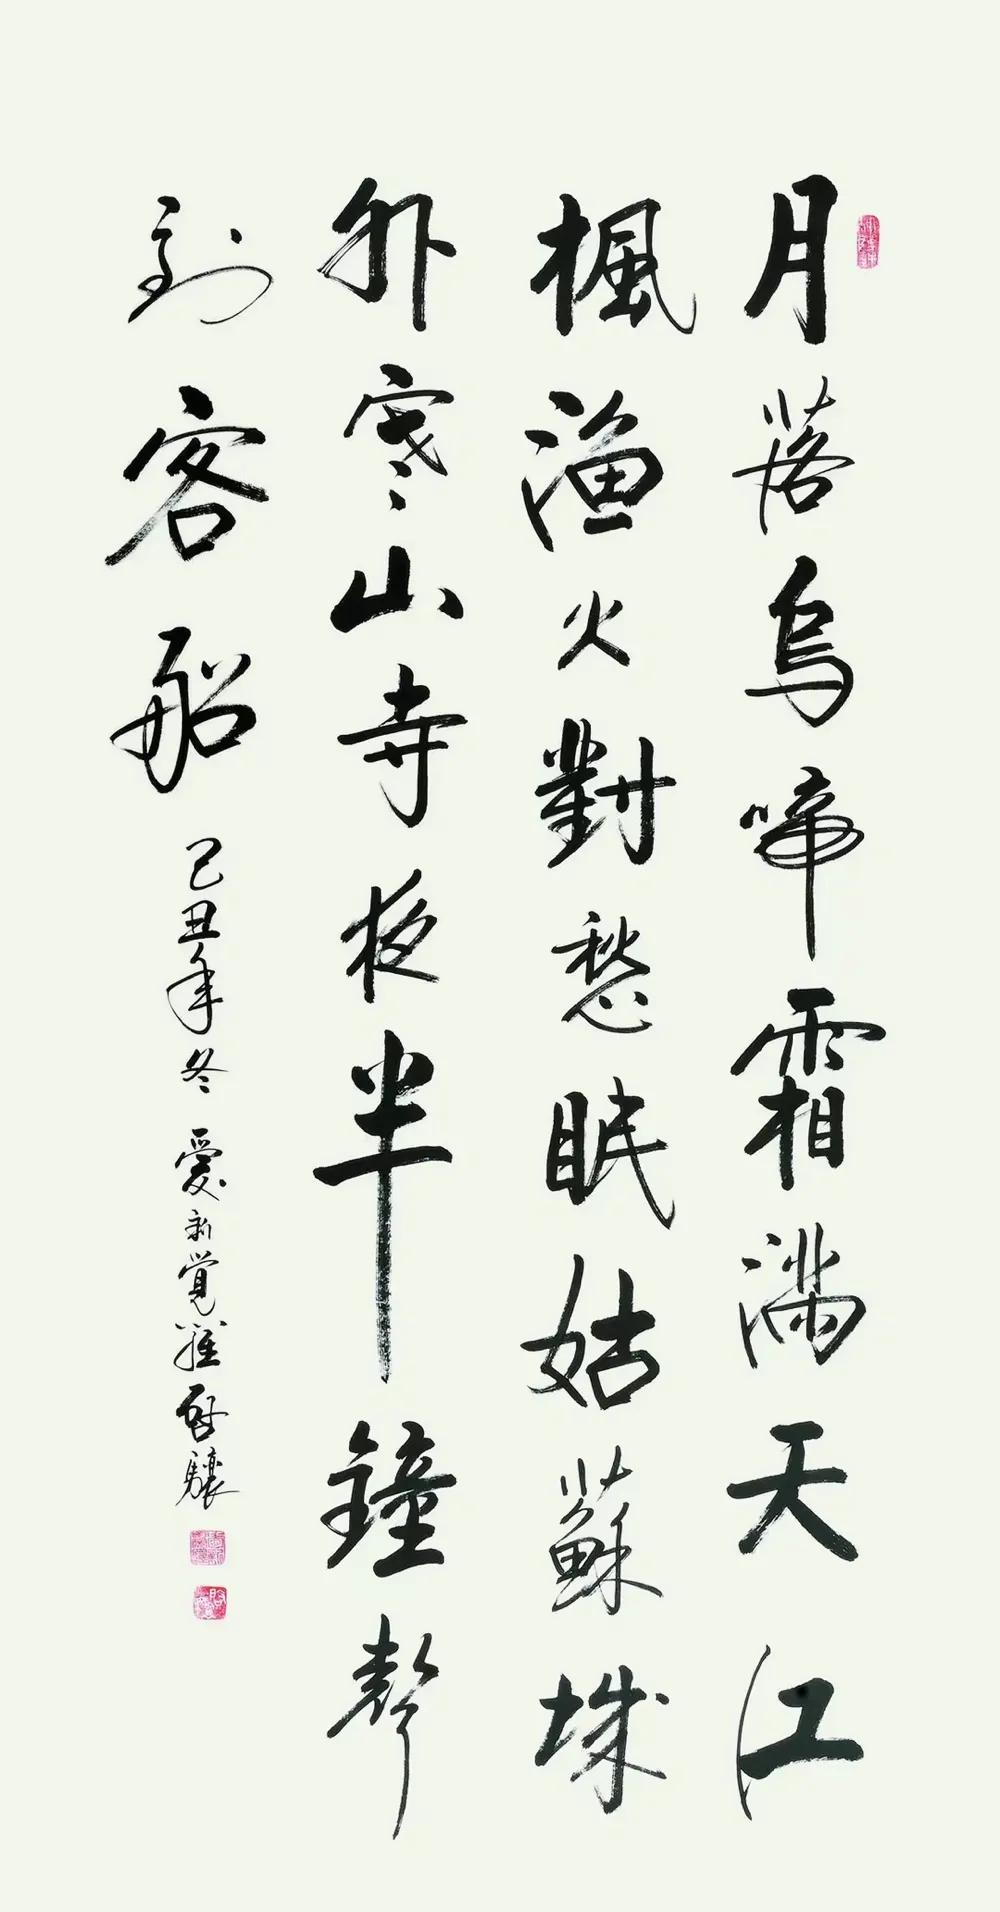 月落烏啼霜满天江
楓漁火對愁眠姑蘇城
外寒山寺夜半鐘聲
到客船
己丑年冬 愛新覺羅啟驤